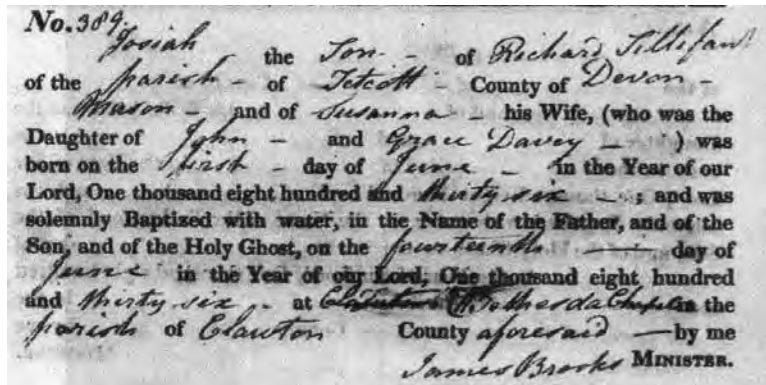 No. 389.
Josiah the Son - of Richard Tillefant
of the parish - of Tetcott - County of Devon -
Mason - and of Susanna - his Wife, (who was the
Daughter of John - and Grace Davey - ) was
born on the first - day of June - in the Year of our
Lord, One thousand eight hundred and thirty six - ; and was
solemnly Baptized with water, in the Name of the Father, and of the
Son, and of the Holy Ghost, on the fourteenth - day of
June - in the Year of our Lord, One thousand eight hundred
and thirty six - at Bethesda Chapel in the
parish of Clawton County aforesaid - by me
James Brooks MINISTER.